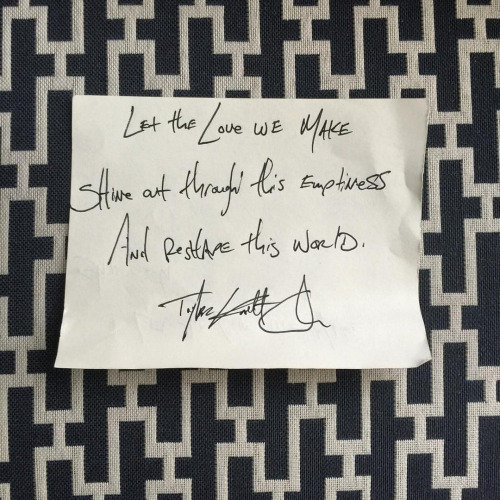 Let the Love we Make
Shine out through this Emptiness
And Reshape this World.
Tyler Knott